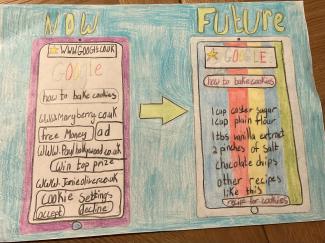 NOW
www.Google.co.uk
Google
how to bake cookies
www.maryberry.co.uk
free Money ad
www.Paulhollywood.co.uk
win top prize
www.Jamieoliver.co.uk
cookie settings
accept decline
Future
GOOGLE
how to bake cookies
1 cup caster sugar
1 cup plain flour
1 tbs vanilla extract
2 pinches of salt
chocolate chips
other recipes
like this
for cookies